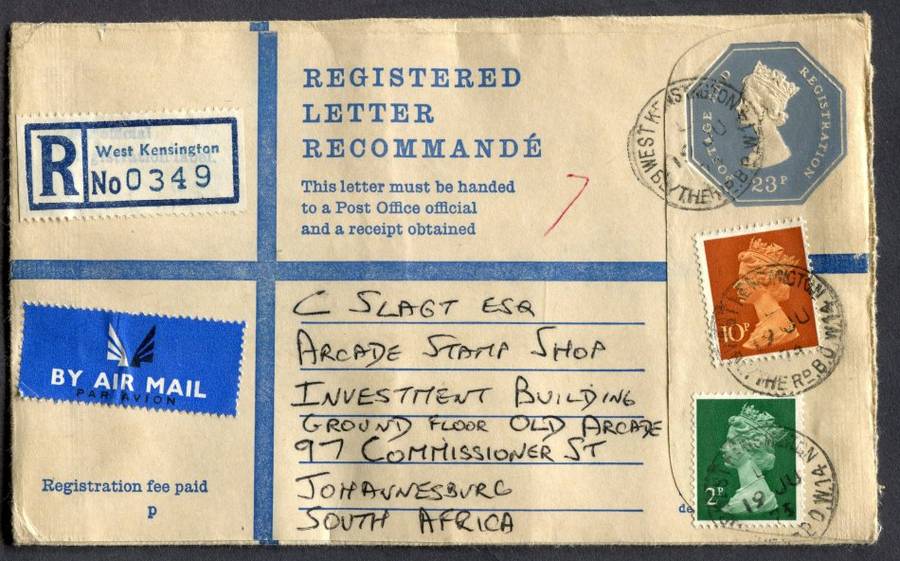 REGISTERED
LETTER
RECOMMANDÉ
This letter must be handed
to a Post Office official
and a receipt obtained
R
West Kensington
No 0349
POSTAGE AND REGISTRATION
23P
WEST KENSINGTON
BLYTHE RD.
7
10P
KENSINGTON
19 JU
BLYTHE RD. B.O. W.14
2P
19 JU
B.O. W.14
BY AIR MAIL
PAR AVION
C SLAGT ESQ
ARCADE STAMP SHOP
INVESTMENT BUILDING
GROUND FLOOR OLD ARCADE
97 COMMISSIONER ST
JOHANNESBURG
SOUTH AFRICA
Registration fee paid
p
de